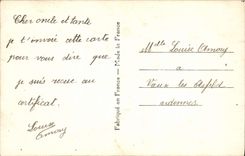 Cher oncle et tante
je t'envoie cette carte
pour vous dire que
je suis recue au
certificat.
Louise
Amory
Fabriqué en France - Made in France
Mlle Louise Amory
a
Vaux les
ardennes